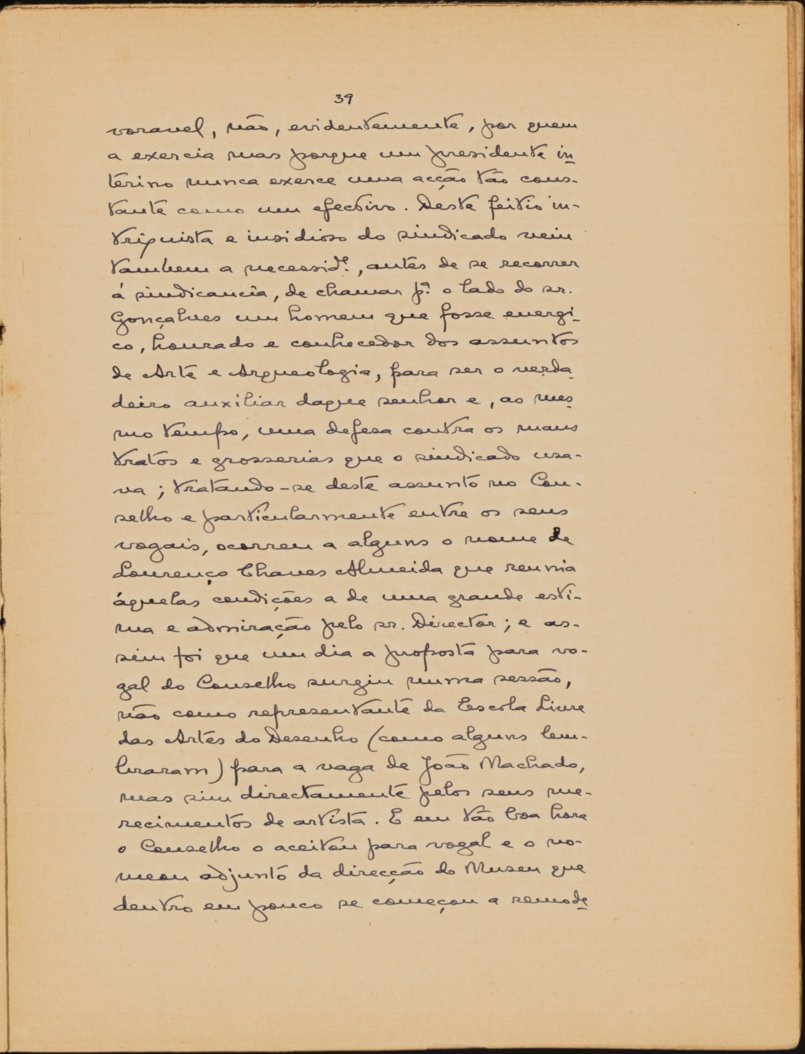 39
voravel, não, evidentemente, por quem
a exercia mas porque um presidente in-
terino nunca exerce uma acção tão cons-
tante como um efectivo. Deste feitio in-
triguista e insidioso do sindicado veiu
tambem a necessid.e, antes de se recorrer
á sindicancia, de chamar p.a o lado do sr.
Gonçalves um homem que fosse energi-
co, honrado e conhecedor dos assuntos
de Arte e Arqueologia, para ser o verda-
deiro auxiliar daque senhor e, ao mes-
mo tempo, uma defesa contra os maus
tratos e grosserias que o sindicado usa-
va; tratando-se deste assunto no Con-
selho e particularmente entre os seus
vogais, ocorreu a alguns o nome de
Lourenço Chaves Almeida que reunia
áquelas condições a de uma grande esti-
ma e admiração pelo sr. Director; e as-
sim foi que um dia a proposta para vo-
gal do Conselho surgiu numa sessão,
não como representante da Escola Livre
das Artes do Desenho (como alguns lem-
braram) para a vaga de João Machado,
mas sim directamente pelos seus me-
recimentos de artista. E em tão boa hora
o Conselho o aceitou para vogal e o no-
meou adjunto da direcção do Museu que
dentro em pouco se começou a remode-